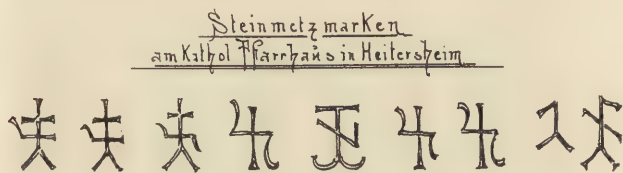 Steinmetzmarken
am Kathol Pfarrhaus in Heitersheim